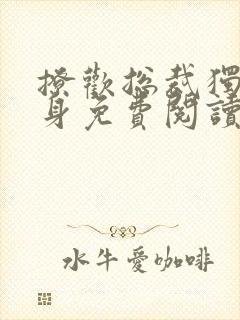 撩歡總裁獨
身免費閱讀
水牛愛咖啡